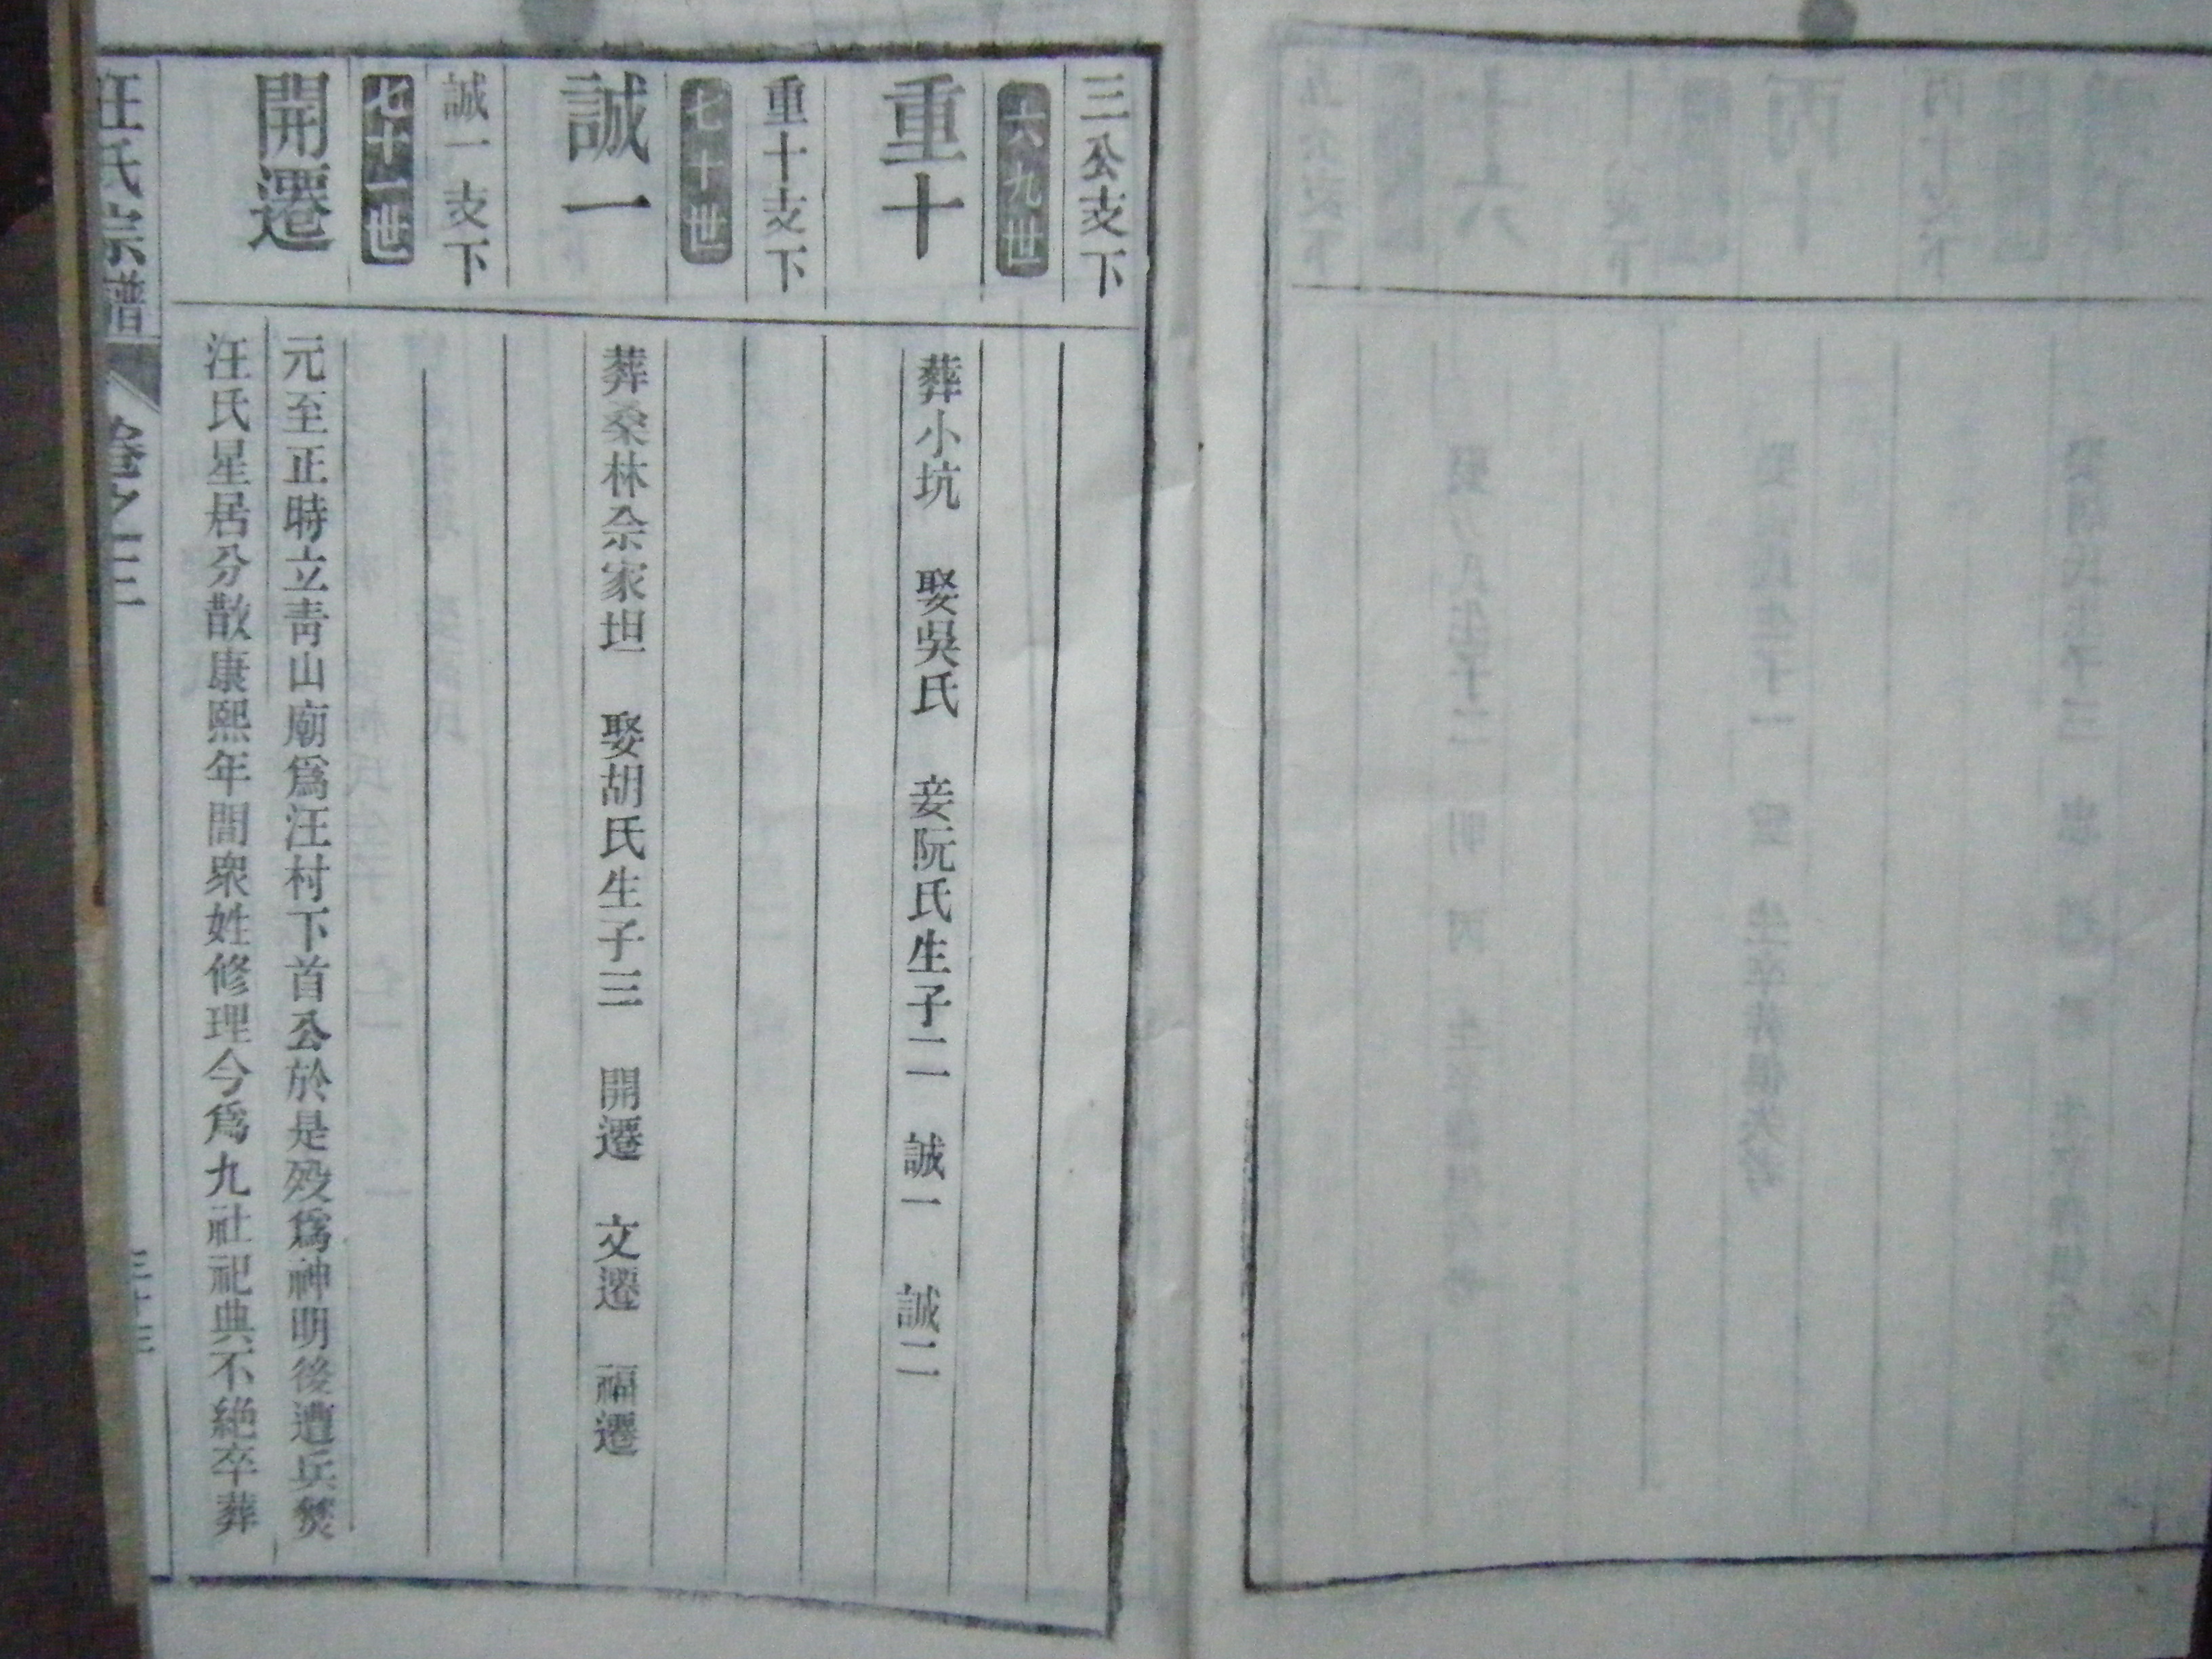 三公支下
六九世
重十
葬小坑　娶吳氏　妾阮氏生子二　誠一　誠二
重十支下
七十世
誠一
葬桑林佘家坦　娶胡氏生子三　開遷　文遷　福遷
誠一支下
七十一世
開遷
元至正時立青山廟爲汪村下首公於是歿爲神明後遭兵燹
汪氏星居分散康熙年間衆姓修理今爲九社祀典不絶卒葬
汪氏宗譜
卷之三